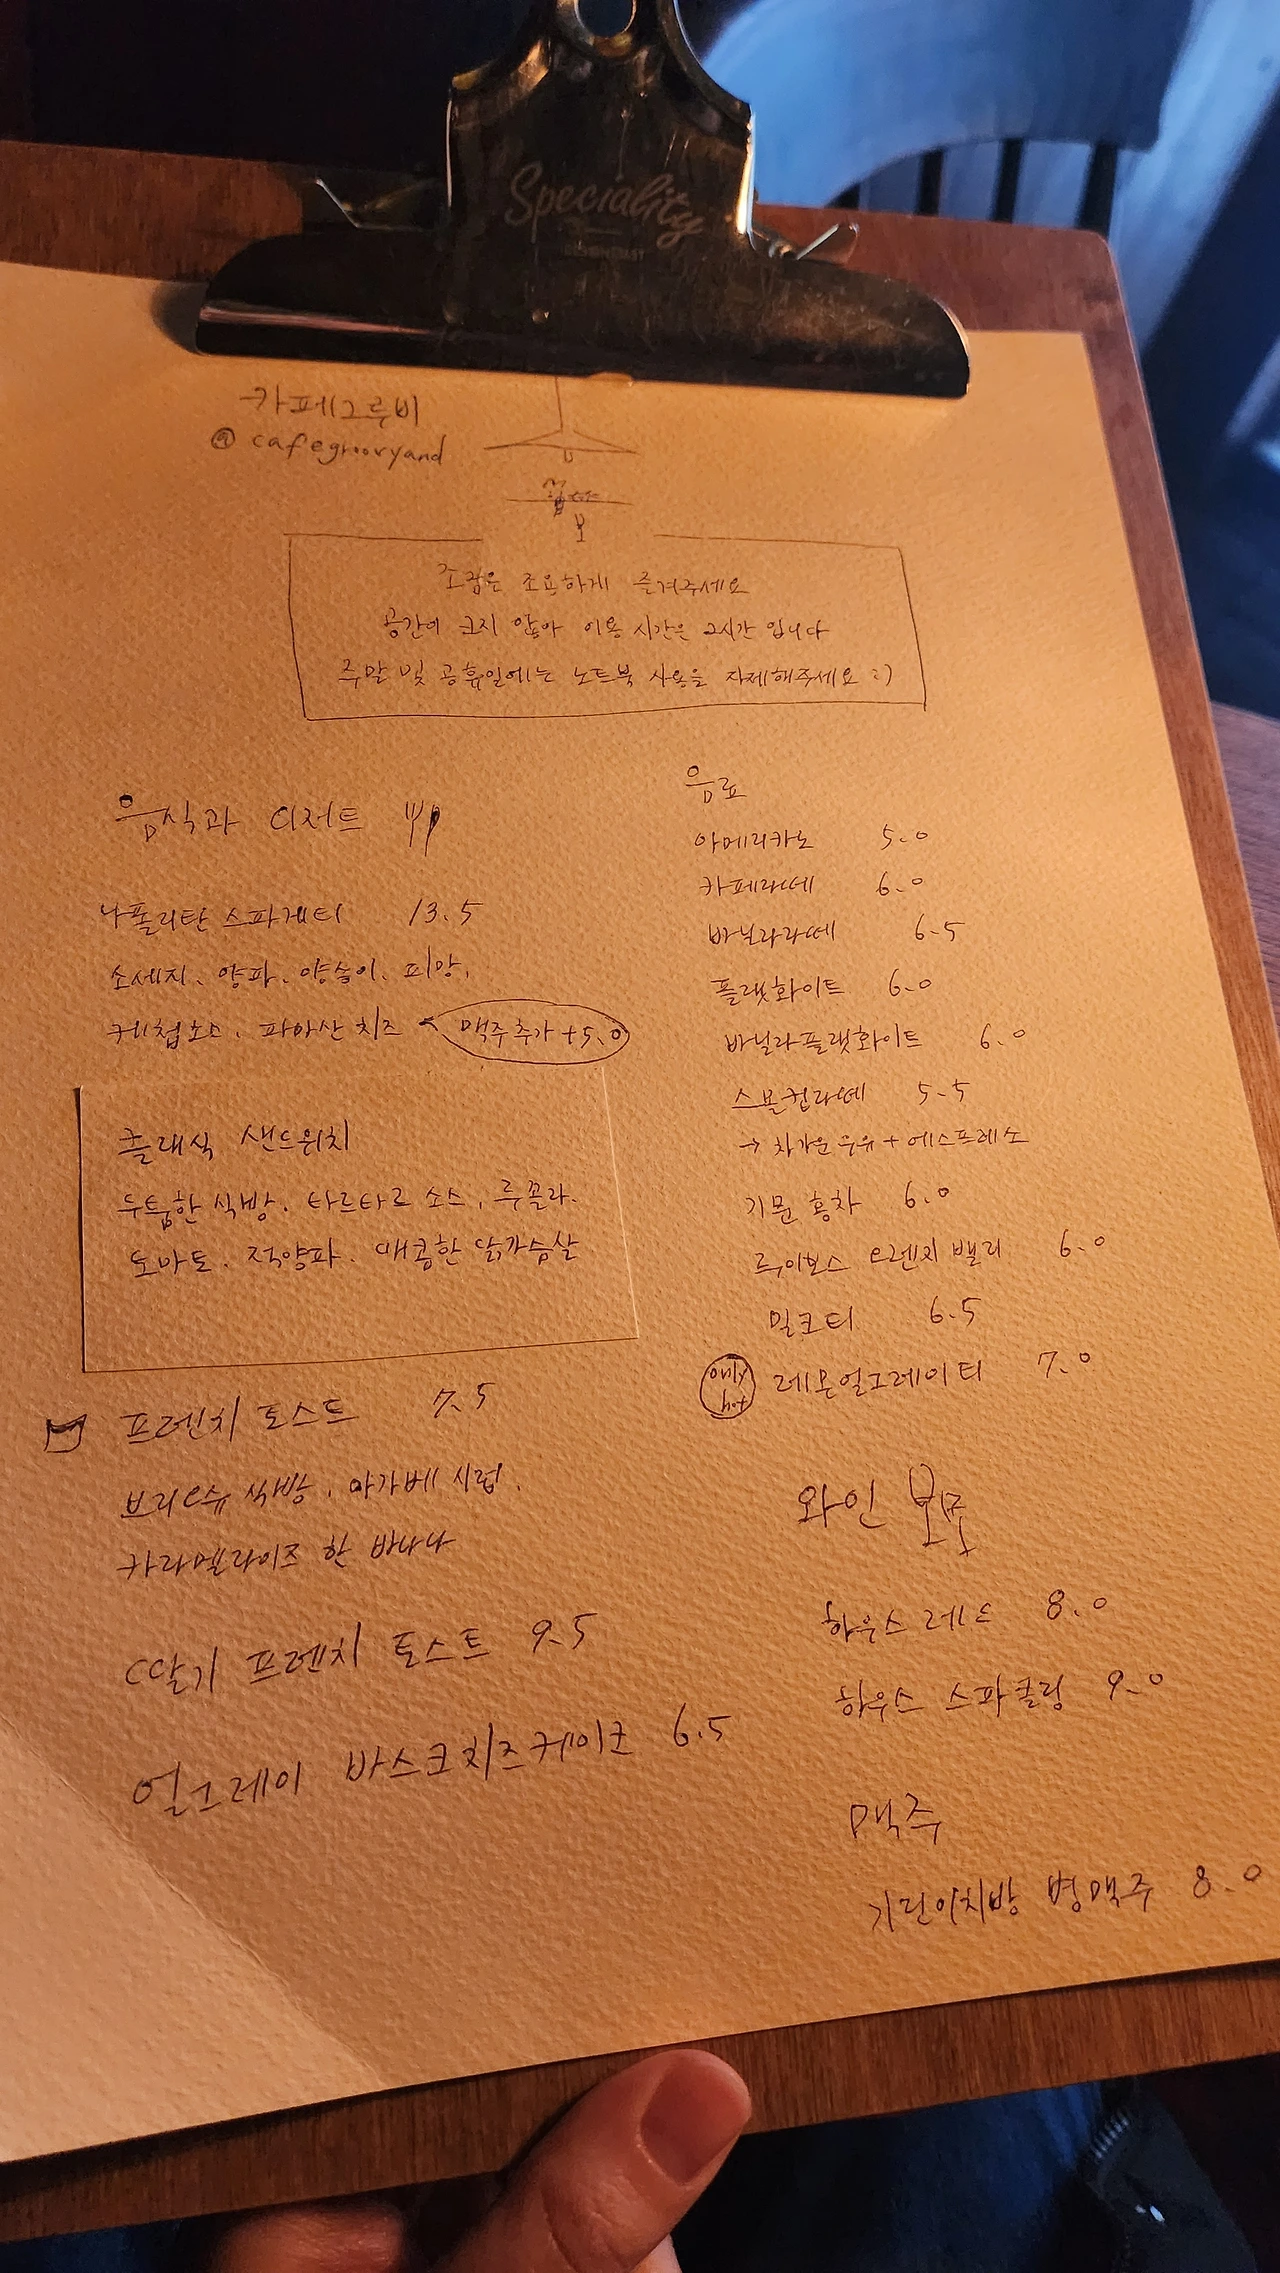 Speciality
카페그루비
@ cafegroovyand
조금은 조용하게 즐겨주세요
공간이 크지 않아 이용 시간은 2시간 입니다
주말 및 공휴일에는 노트북 사용을 자제해주세요 :)
음식과 디저트
나폴리탄 스파게티 13.5
소세지, 양파, 양송이, 피망,
케첩소스, 파마산 치즈 맥주추가 +5.0
클래식 샌드위치
두툼한 식빵, 타르타르 소스, 루꼴라,
토마토, 적양파, 매콤한 닭가슴살
프렌치 토스트 7.5
브리오슈 식빵, 아가베 시럽,
카라멜라이즈 한 바나나
딸기 프렌치 토스트 9.5
얼그레이 바스크치즈케이크 6.5
음료
아메리카노 5.0
카페라떼 6.0
바닐라라떼 6.5
플랫화이트 6.0
바닐라플랫화이트 6.0
스몰컵라떼 5.5
→ 차가운 우유 + 에스프레소
기문 홍차 6.0
루이보스 오렌지 밸리 6.0
밀크티 6.5
only hot 레몬얼그레이티 7.0
와인
하우스 레드 8.0
하우스 스파클링 9.0
맥주
기린이치방 병맥주 8.0